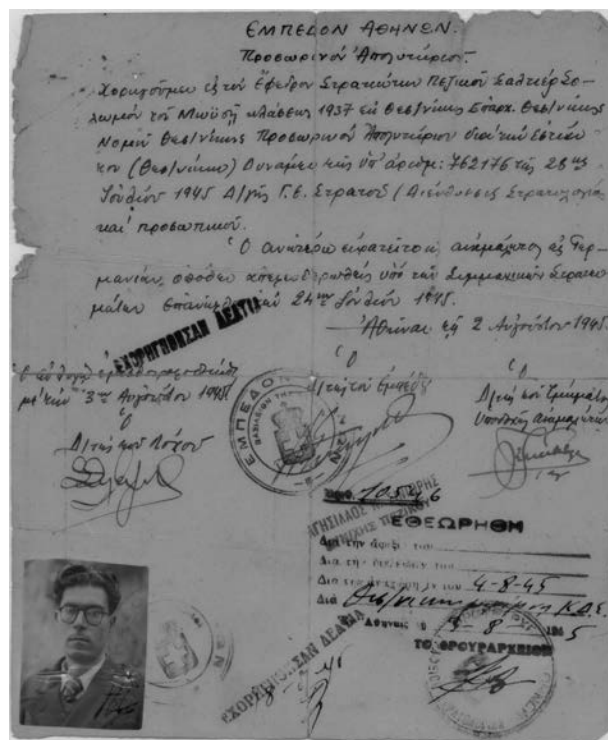 ΕΜΠΕΔΟΝ ΑΘΗΝΩΝ.
Προσωρινόν Ἀπολυτήριον.
Χορηγοῦμεν εἰς τόν Ἔφεδρον Στρατιώτην Πεζικοῦ Σαλτιέρ Σο-
λωμόν τοῦ Μωϋσῆ κλάσεως 1937 ἐκ Θεσ/νίκης Ἐπαρχ. Θεσ/νίκης
Νομοῦ Θεσ/νίκης Προσωρινόν Ἀπολυτήριον διά
(Θεσ/νίκην) Δυνάμει τῆς ὑπ' ἀριθμ: 762176 τῆς 28ης
Ἰουλίου 1945 Δ/γῆς Γ.Ε. Στρατοῦ (Διεύθυνσις Στρατολογίας
καί προσωπικοῦ.
Ὁ ἀνωτέρω ἐκρατεῖτο ὡς αἰχμάλωτος εἰς Γερ-
μανίαν, ὁπόθεν ἀπελευθερωθείς ὑπό τῶν Συμμαχικῶν Στρατευ-
μάτων τήν 24ην Ἰουλίου 1945.
Ἀθῆναι τῇ 2 Αὐγούστου 1945
ΕΧΟΡΗΓΗΘΗΣΑΝ ΔΕΛΤΙΑ
μέ τήν 3ην Αὐγούστου 1945
Ὁ
Δ/τής τοῦ Λόχου
Ὁ
Δ/τής τοῦ Ἐμπέδου
Ὁ
Δ/τής τοῦ Τμήματος
Ὑποδοχῆς Αἰχμαλώτων
ΕΜΠΕΔΟΝ
Ἀριθ. 10546
ΑΓΗΣΙΛΑΟΣ
ΠΕΖΙΚΟΥ
ΕΘΕΩΡΗΘΗ
Διά τήν ἄφιξίν του
Διά τήν
Διά τήν ἀναχώρησίν του 4-8-45
Διά Θεσ/νίκην
Ἀθῆναι 3-8-1945
ΤΟ ΦΡΟΥΡΑΡΧΕΙΟΝ
ΕΧΟΡΗΓΗΘΗΣΑΝ ΔΕΛΤΙΑ